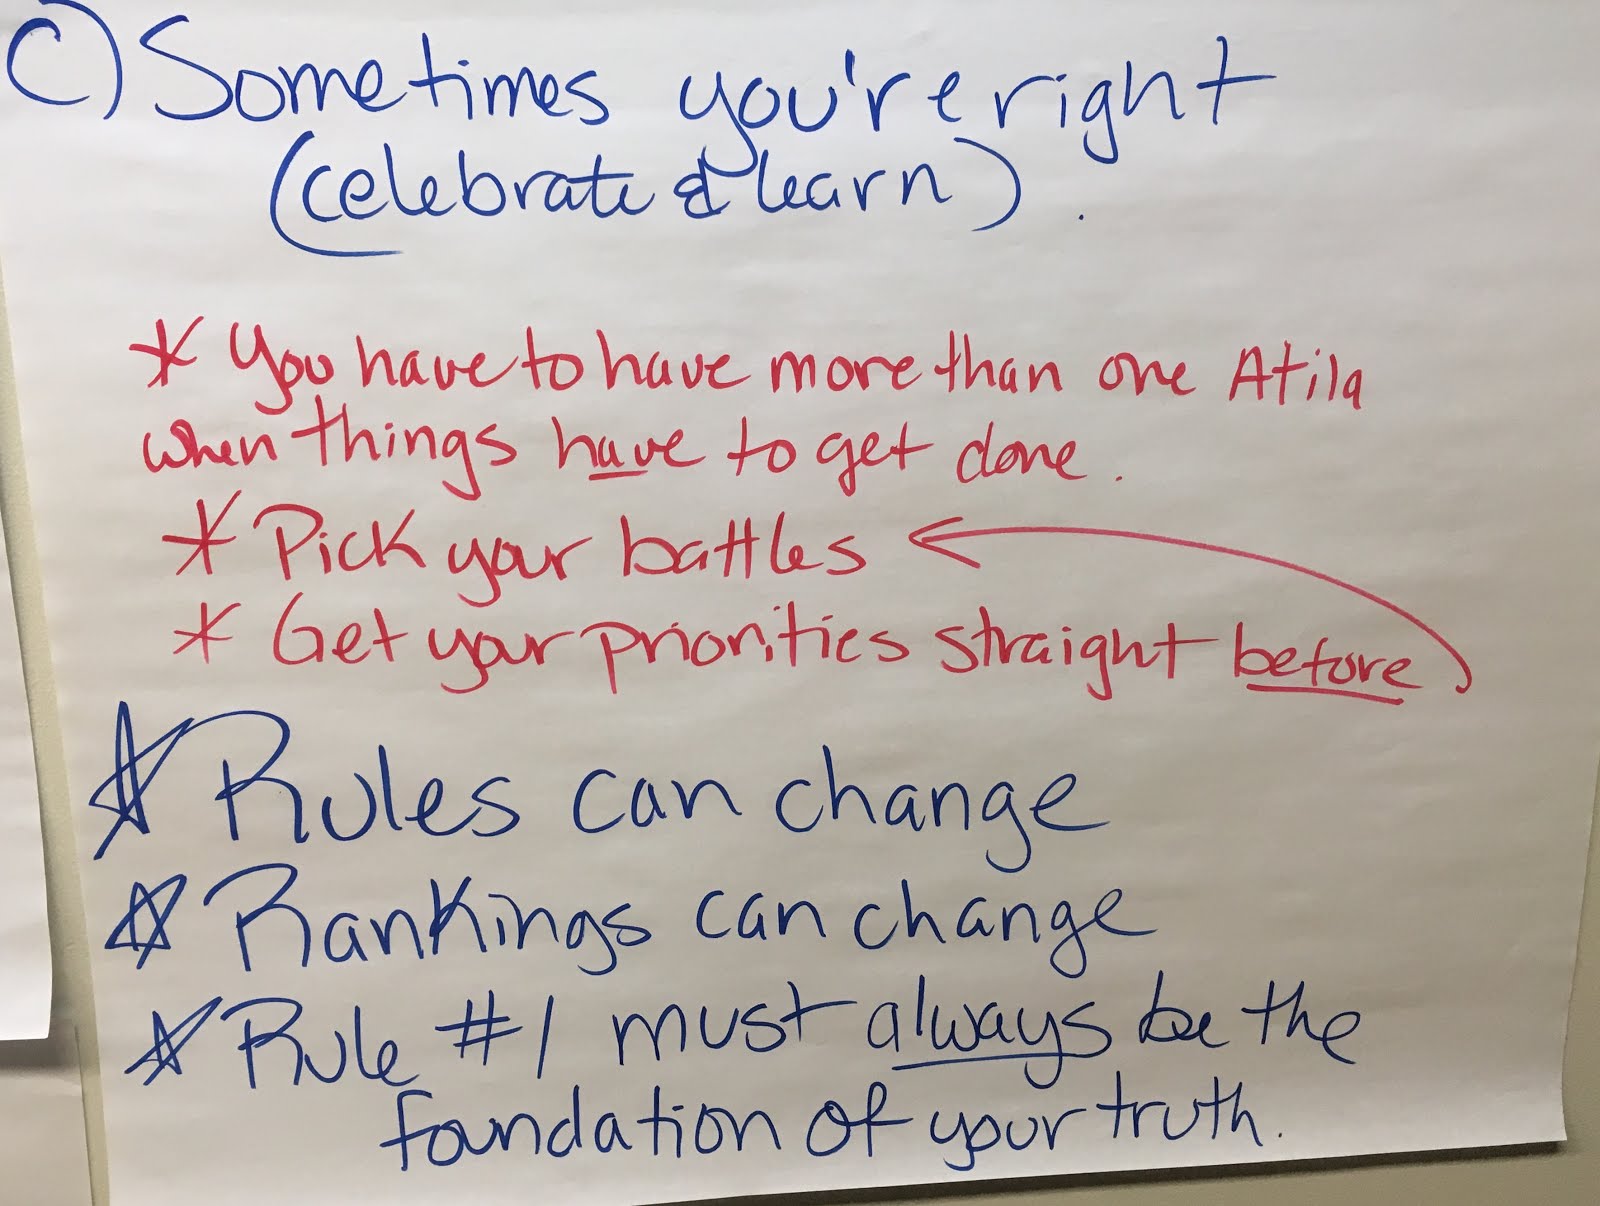 C) Sometimes you're right
(celebrate & learn).
* You have to have more than one Atila
when things have to get done.
* Pick your battles
* Get your priorities straight before
* Rules can change
* Rankings can change
* Rule #1 must always be the
foundation of your truth.